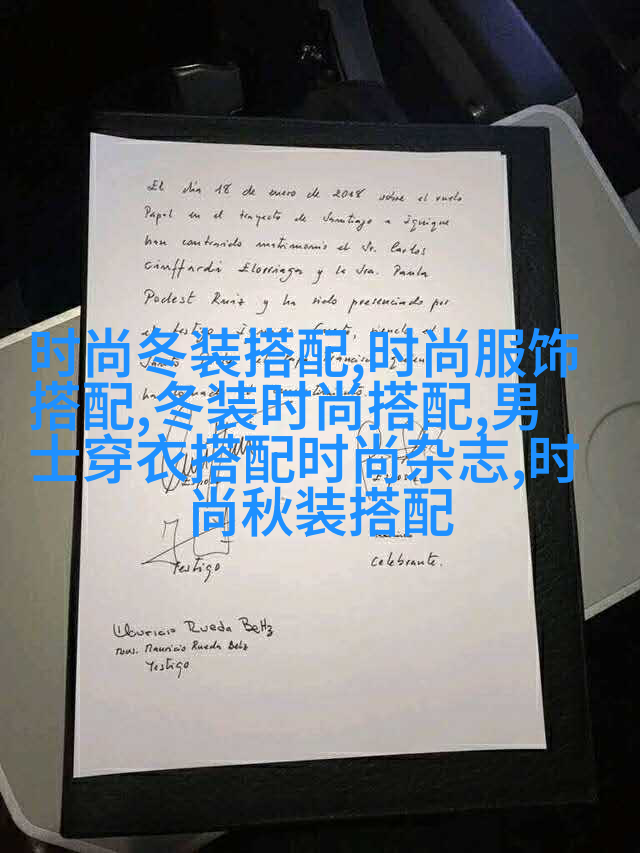 El día 18 de enero de 2018 sobre el vuelo
Papal en el trayecto de Santiago a Iquique
han contraido matrimonio el Sr. Carlos
Ciuffardi Elorriaga y la Sra. Paula
Podest Ruiz y ha sido presenciado por
时尚冬装搭配,时尚服饰
搭配,冬装时尚搭配,男
士穿衣搭配时尚杂志,时
尚秋装搭配
Testigo
Celebrante.
Mauricio Rueda Beltz
Mons. Mauricio Rueda Beltz
Testigo